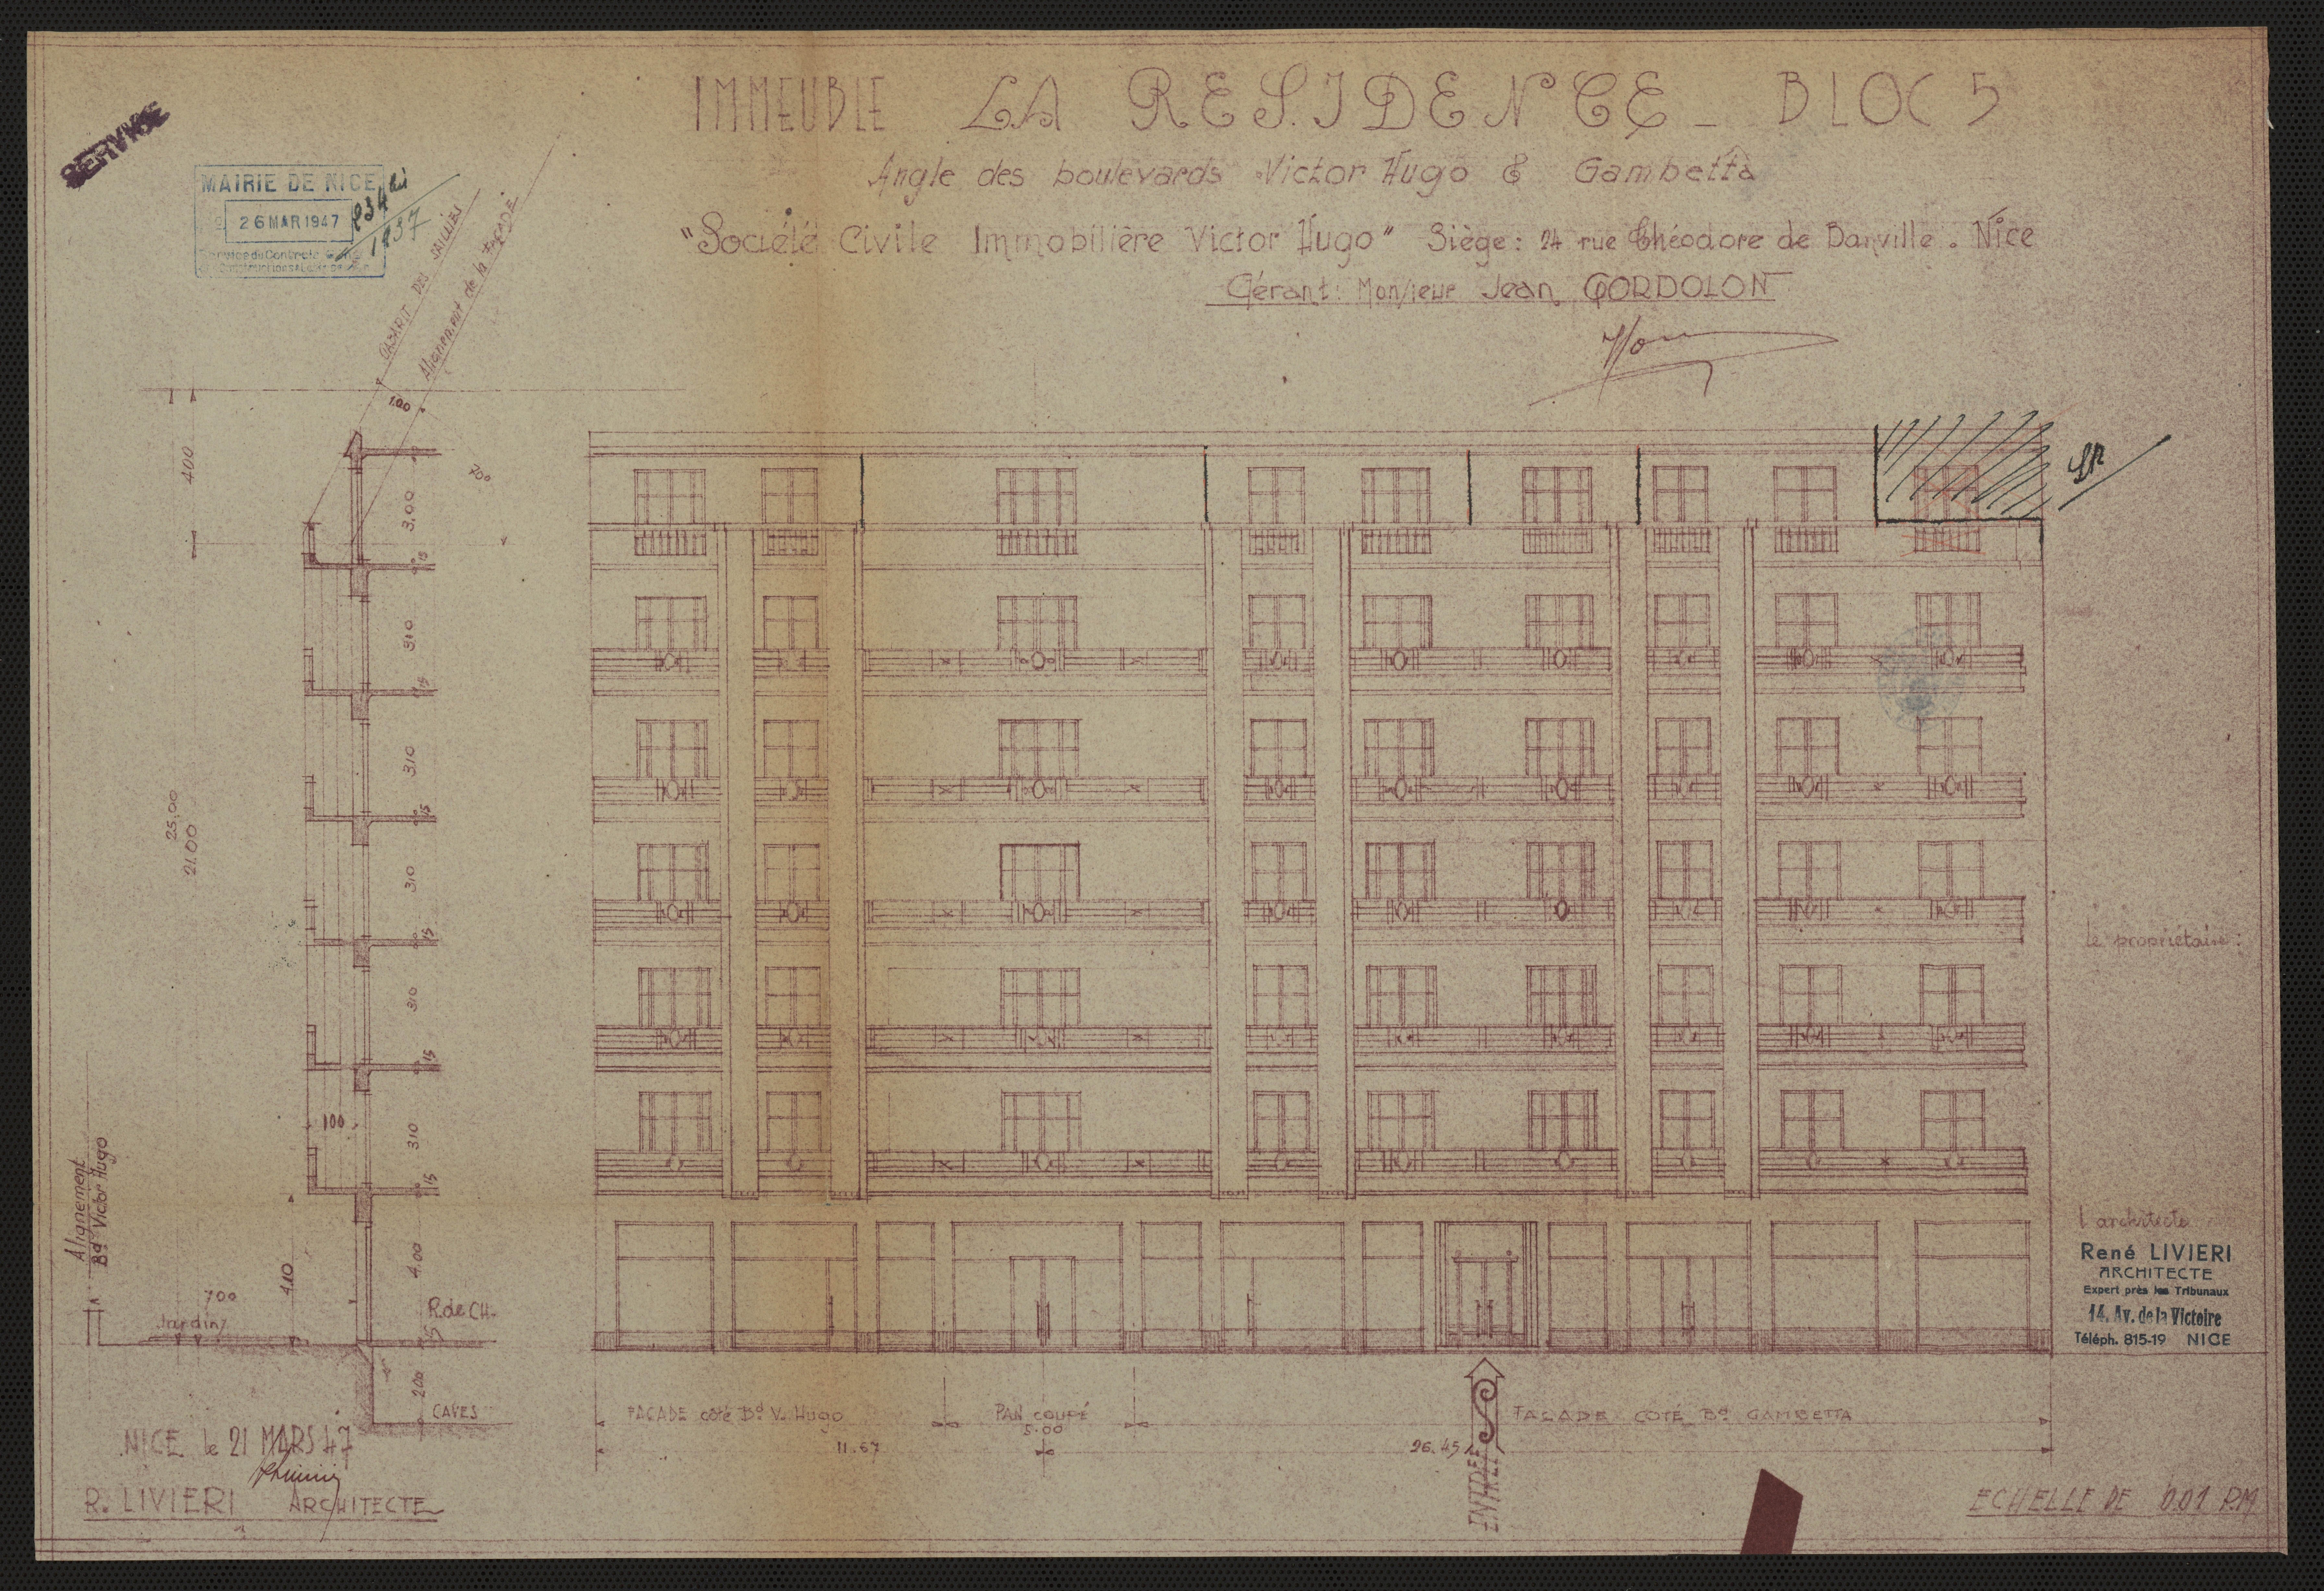 IMMEUBLE LA RESIDENCE _ BLOC 5
Angle des boulevards Victor Hugo & Gambetta
"Société Civile Immobilière Victor Hugo" Siège: 24 rue Théodore de Banville . Nice
Gérant: Monsieur Jean GORDOLON
SERVICE
MAIRIE DE NICE
26 MAR 1947
Service du Contrôle
234 bis
1937
GABARIT DES SAILLIES
Alignement de la FAÇADE
1.00
400
700
3.00
15
310
15
310
15
310
15
310
15
310
15
25.00
21.00
100
Alignement
Bd Victor Hugo
4.10
4.00
700
Jardin
R.de CH-
15
200
CAVES
le propriétaire :
l'architecte
René LIVIERI
ARCHITECTE
Expert près les Tribunaux
14. Av. de la Victoire
Téléph. 815-19 NICE
FAÇADE coté Bd V. Hugo
PAN COUPÉ
5.00
FAÇADE COTÉ Bd GAMBETTA
11.67
26.45
ENTREE
NICE le 21 MARS 47
R. LIVIERI ARCHITECTE
ECHELLE DE 0.01 P.M